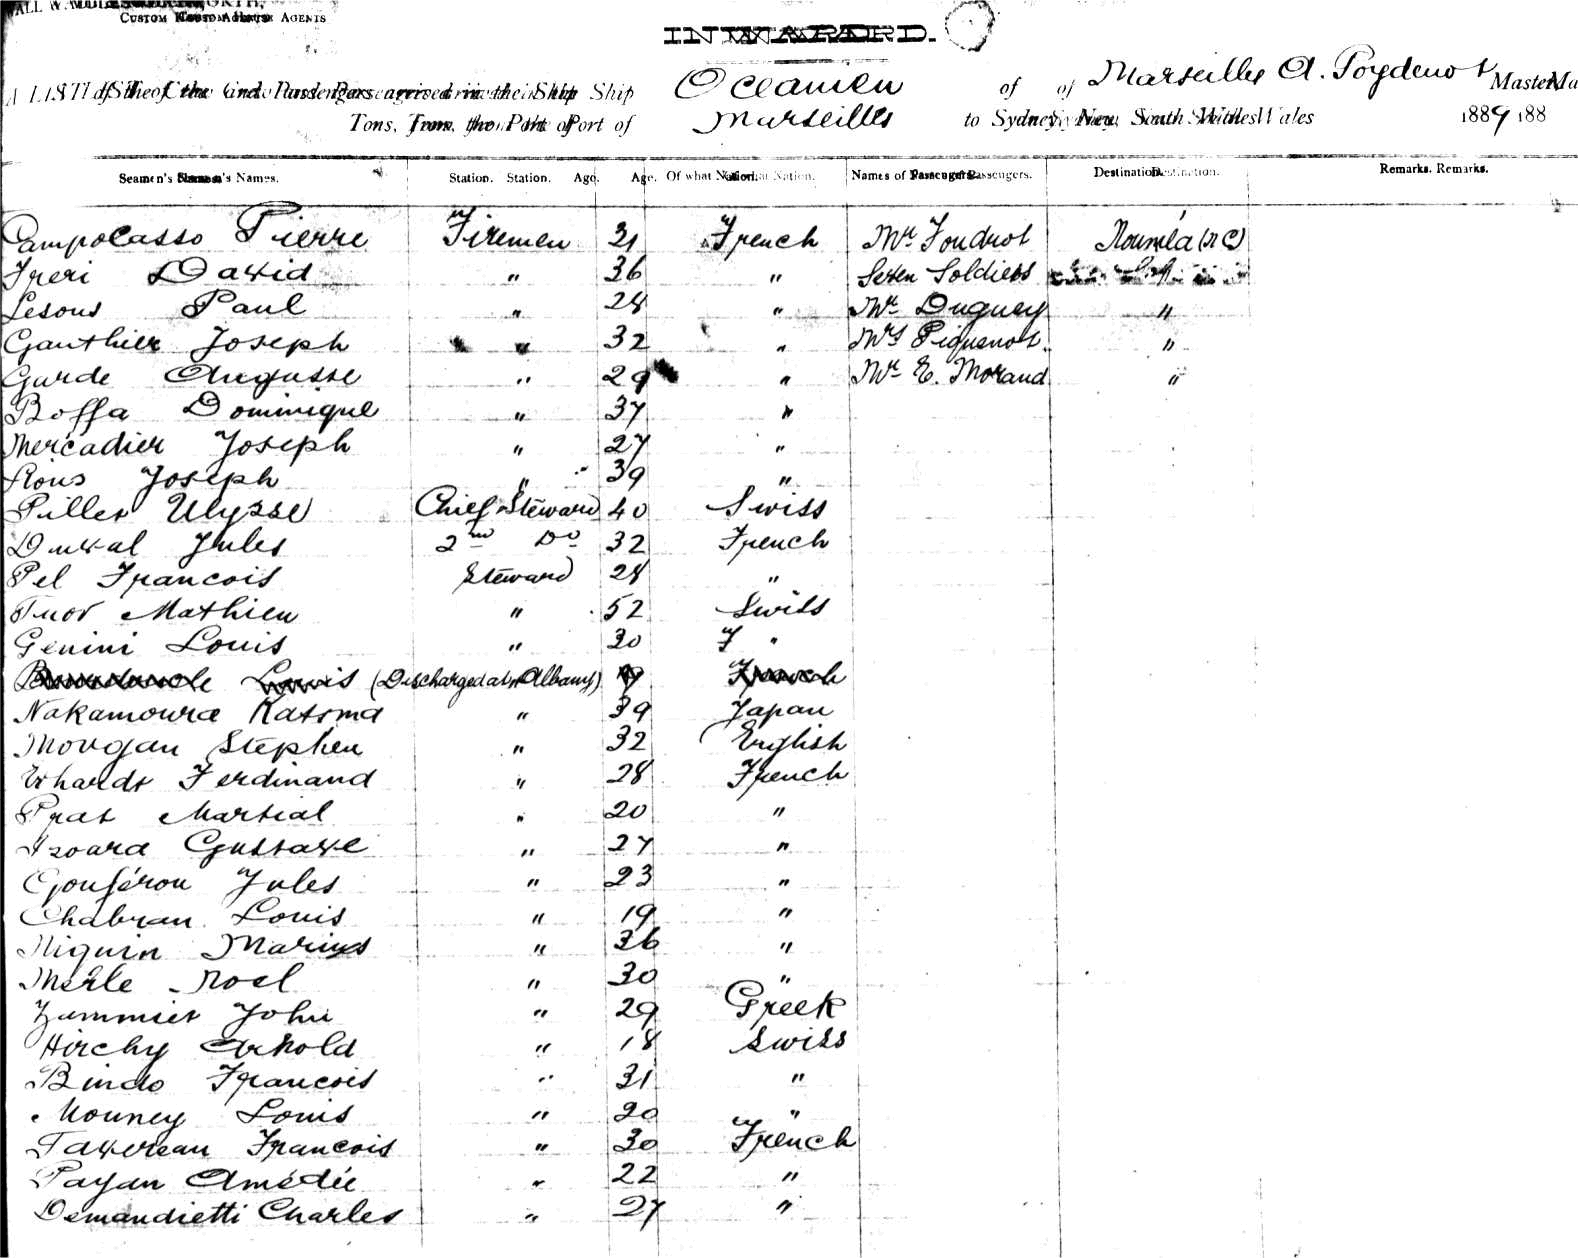 CUSTOM HOUSE AGENTS
INWARD.
A LIST of the Crew and Passengers arrived in the Ship Oceanien of Marseilles A. Poydenot Master
Tons, from the Port of Marseilles to Sydney, New South Wales 1889
Seamen's Names. Station. Age. Of what Nation. Names of Passengers. Destination. Remarks.
Campocasso Pierre Firemen 31 French Mr. Foudrot Nouméa (N C)
Freri David " 36 " Seven Soldiers
Lesous Paul " 28 " Mr. Duguey "
Gauthier Joseph " 32 " Mrs Piquenot "
Garde Augusse " 29 " Mr. E. Morand "
Boffa Dominique " 37 "
Mercadier Joseph " 27 "
Rous Joseph " 39 "
Piller Ulysse Chief Steward 40 Swiss
Duval Jules 2nd Do 32 French
Pel Francois Steward 28 "
Tuor Mathieu " 52 Swiss
Genini Louis " 30 "
Louis (Discharged at Albany) French
Nakamoura Katsma " 39 Japan
Morgan Stephen " 32 English
Erhardt Ferdinand " 28 French
Prat Martial " 20 "
Isoard Gustave " 27 "
Gonféron Jules " 23 "
Chabran Louis " 19 "
Niguin Marius " 36 "
Merle Noel " 30 "
Zammier John " 29 Greek
Hirchy Arnold " 18 Swiss
Bindo Francois " 31 "
Mouney Louis " 20 "
Tavereau Francois " 30 French
Payan Amédée " 22 "
Demandietti Charles " 27 "